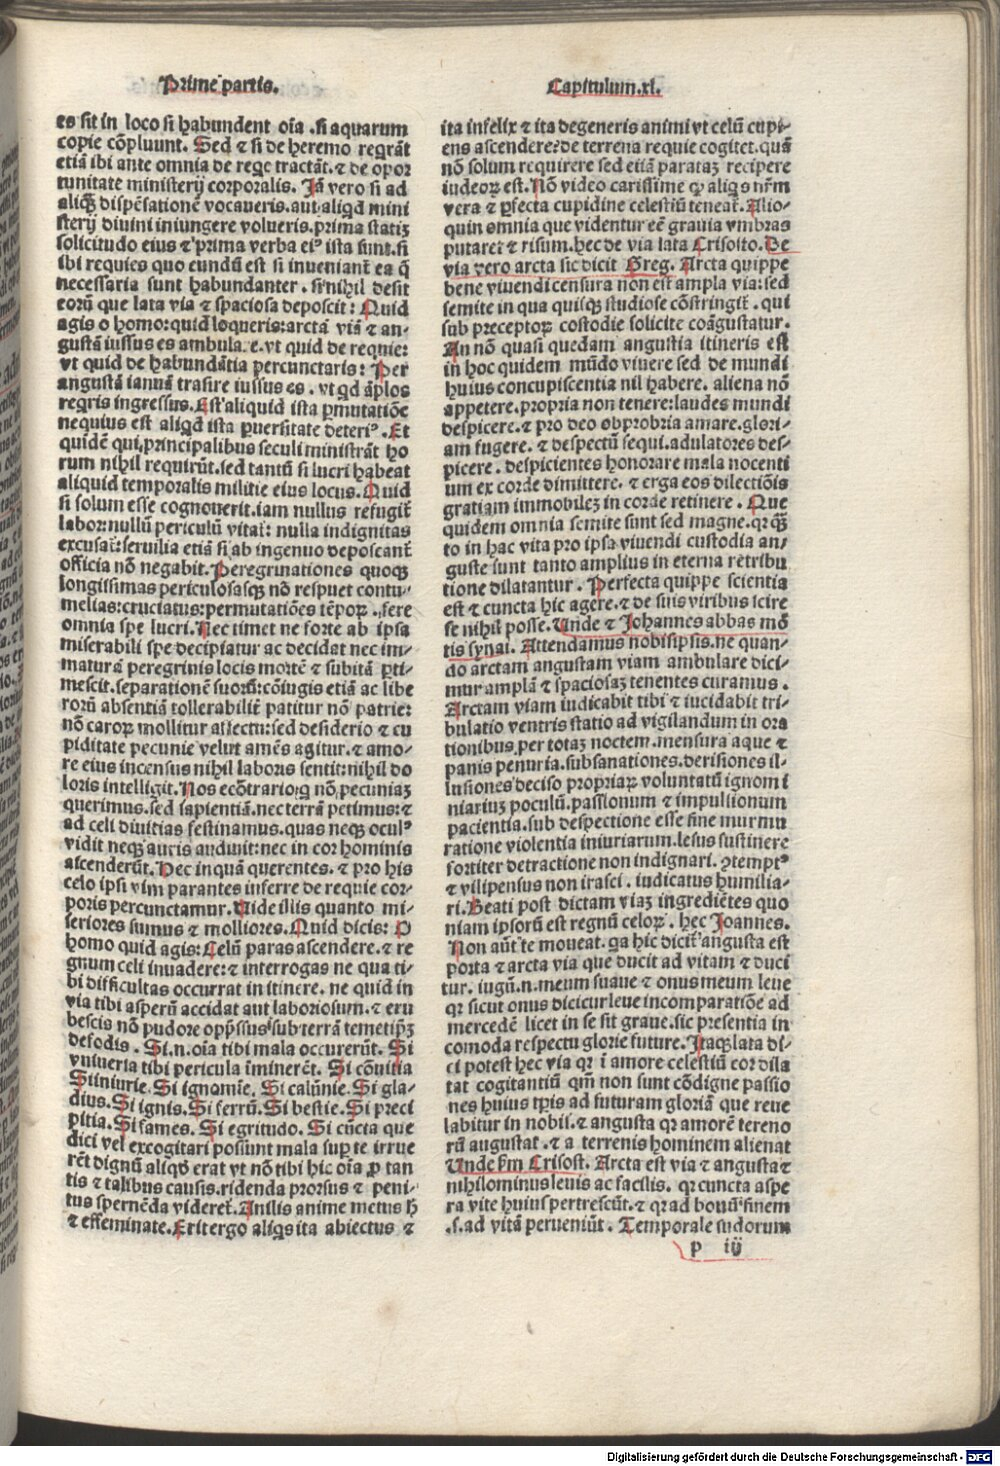 Prime partis.
Capitulum.xl.
es sit in loco si habundent oĩa .si aquarum
copie cõpluunt. Sed ⁊ si de heremo reqrãt
etiã ibi ante omnia de reqe tractãt.⁊ de opor
tunitate ministerij corporalis. Iã vero si ad
aliqḋ dispẽsationẽ vocaveris.aut aliqd mini
sterij divini iniungere volueris.prima statiʒ
solicitudo eius ⁊ prima verba eiꝰ ista sunt.si
ibi requies quo eundũ est si inveniant̃ ea q̃
necessaria sunt habundanter . si nihil desit
eorũ que lata via ⁊ spaciosa deposcit: Quid
agis o homo:quid loqueris:arctã viã ⁊ an-
gustã iussus es ambula.e.vt quid de requie:
vt quid de habundãtia percunctaris: Per
angustã ianuã trãsire iussus es . vt qd ãplos
reqris ingressus.Est aliquid ista ꝑmutatiõe
nequius est aliqd ista ꝑuersitate deteriꝰ.Et
quidẽ qui principalibus seculi ministrãt ho
rum nihil requirũt.sed tantũ si lucri habeat
aliquid temporalis militie eius locus.Quid
si solum esse cognoverit.iam nullus refugit̃
labor:nullũ periculũ vitat̃: nulla indignitas
excusat̃:servilia etiã si ab ingenuo deposcant̃
officia nõ negabit.Peregrinationes quoqʒ
longissimas periculosasqʒ nõ respuet contu-
melias:cruciatus:permutatiões tẽpoꝝ .fere
omnia spe lucri.Nec timet ne forte ab ipsa
miserabili spe decipiatur ac decidat nec im-
maturã peregrinis locis mortẽ ⁊ subitã ꝑti-
mescit.separationẽ suorũ:cõiugis etiã ac libe
rorũ absentiã tollerabilit̃ patitur nõ patrie:
nõ caroꝝ mollitur affectu:sed desiderio ⁊ cu
piditate pecunie velut amẽs agitur.⁊ amo-
re eius incensus nihil laboris sentit:nihil do
loris intelligit.Nos ecõtrario:q nõ pecuniaʒ
querimus.sed sapientiã.nec terrã petimus:⁊
ad celi divitias festinamus.quas neqʒ oculꝰ
vidit neqʒ auris audivit:nec in cor hominis
ascenderũt.Hec inquã querentes.⁊ pro his
celo ipsi vim parantes inferre de requie cor-
poris percunctamur.Vide illis quanto mi-
seriores sumus ⁊ molliores.Quid dicis: O
homo quid agis:Celũ paras ascendere.⁊ re
gnum celi invadere:⁊ interrogas ne qua ti-
bi difficultas occurrat in itinere. ne quid in
via tibi asperũ accidat aut laboriosum.⁊ eru
bescis nõ pudore opp̃ssus sub terrã temetip̃ʒ
defodis . Si.n.oĩa tibi mala occurerũt. Si
vniversa tibi pericula ĩminerẽt. Si cõvitia
Si iniurie.Si ignomĩe. Si calũnie.Si gla-
dius.Si ignis.Si ferrũ.Si bestie.Si preci
pitia.Si fames.Si egritudo.Si cũcta que
dici vel excogitari possunt mala suꝑ te irrue
rẽt dignũ aliqḋ erat vt nõ tibi hic oĩa ꝓ tan
tis ⁊ talibus causis.ridenda prorsus ⁊ peni-
tus spernẽda videret̃.Anilis anime metus h̃
⁊ effeminate.Erit ergo aliqs ita abiectus ⁊
ita infelix ⁊ ita degeneris animi vt celũ cupi-
ens ascendere:de terrena requie cogitet.quã
nõ solum requirere sed etiã parataʒ recipere
iudeoꝝ est.Nõ video carissime ꝙ aliqs nr̃m
vera ⁊ ꝑfecta cupidine celestiũ teneat̃.Alio-
quin omnia que videntur eẽ gravia vmbras
putaret ⁊ risum.hec de via lata Crisosto.De
via vero arcta sic dicit Greg. Arcta quippe
bene vivendi censura non est ampla via:sed
semite in qua quisqʒ studiose cõstringit̃ . qui
sub preceptoꝝ costodie solicite coãgustatur.
An nõ quasi quedam angustia itineris est
in hoc quidem mũdo vivere sed de mundi
huius concupiscentia nil habere. aliena nõ
appetere.propria non tenere:laudes mundi
despicere.⁊ pro deo obprobria amare.glori-
am fugere. ⁊ despectũ sequi.adulatores des-
picere . despicientes honorare mala nocenti
um ex corde dimittere. ⁊ erga eos dilectiõis
gratiam immobileʒ in corde retinere . Que
quidem omnia semite sunt sed magne.qꝛ qʒ̃
to in hac vita pro ipsa vivendi custodia an-
guste sunt tanto amplius in eterna retribu
tione dilatantur . Perfecta quippe scientia
est ⁊ cuncta hic agere.⁊ de suis viribus scire
se nihil posse.Unde ⁊ Johannes abbas mõ
tis synai. Attendamus nobisipsis.ne quan-
do arctam angustam viam ambulare dici-
mur amplã ⁊ spaciosaʒ tenentes curamus .
Arctam viam iudicabit tibi ⁊ iucidabit tri-
bulatio ventris statio ad vigilandum in ora
tionibus per totaʒ noctem.mensura aque ⁊
panis penuria.subsanationes.derisiones il-
lusiones deciso propriaꝝ voluntatũ ignom i
niariuʒ poculũ.passionum ⁊ impulsionum
pacientia.sub despectione esse sine murmu
ratione violentia iniuriarum.lesus sustinere
fortiter detractione non indignari. ꝯtemptꝰ
⁊ vilipensus non irasci . iudicatus humilia-
ri.Beati post dictam viaʒ ingrediẽtes quo
niam ipsorũ est regnũ celoꝝ . hec Joannes.
Non aũt te moveat. qa hic dicit̃ angusta est
porta ⁊ arcta via que ducit ad vitam ⁊ duci
tur. iugũ.n.meum suave ⁊ onus meum leve
qꝛ sicut onus dicitur leve in comparatiõe ad
mercedẽ licet in se sit grave.sic presentia in
comoda respectu glorie future.Itaqʒ lata di-
ci potest hec via qꝛ ĩ amore celestiũ cor dila
tat cogitantiũ qm̃ non sunt cõdigne passio
nes huius tp̃is ad futuram gloriã que reve
labitur in nobis.⁊ angusta qꝛ amorẽ tereno
rũ augustat.⁊ a terrenis hominem alienat
Unde fm̃ Crisost. Arcta est via ⁊ angusta ⁊
nihilominus levis ac facilis. qꝛ cuncta aspe
ra vite huius pertrescũt.⁊ qꝛ ad bonũ finem
.s.ad vitã perveniũt . Temporale sudorum
p iij
Digitalisierung gefördert durch die Deutsche Forschungsgemeinschaft - DFG